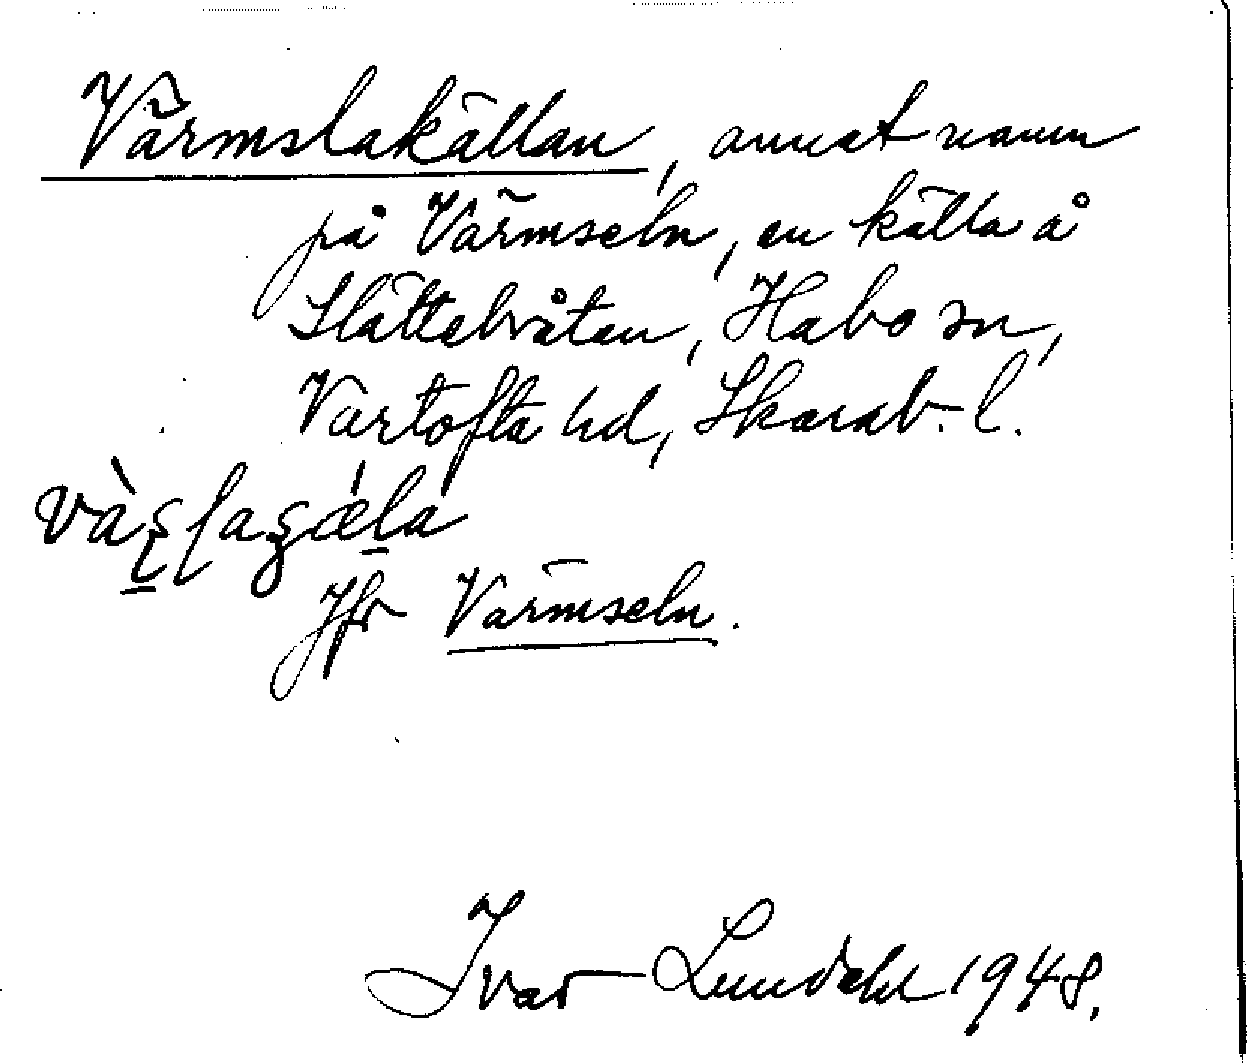 Värmslakällan, annat namn
på Värmseln, en källa å
Slättebråten, Habo sn,
Vartofta hd, Skarab. l.
Jfr Värmseln.
Ivar Lundahl 1948.